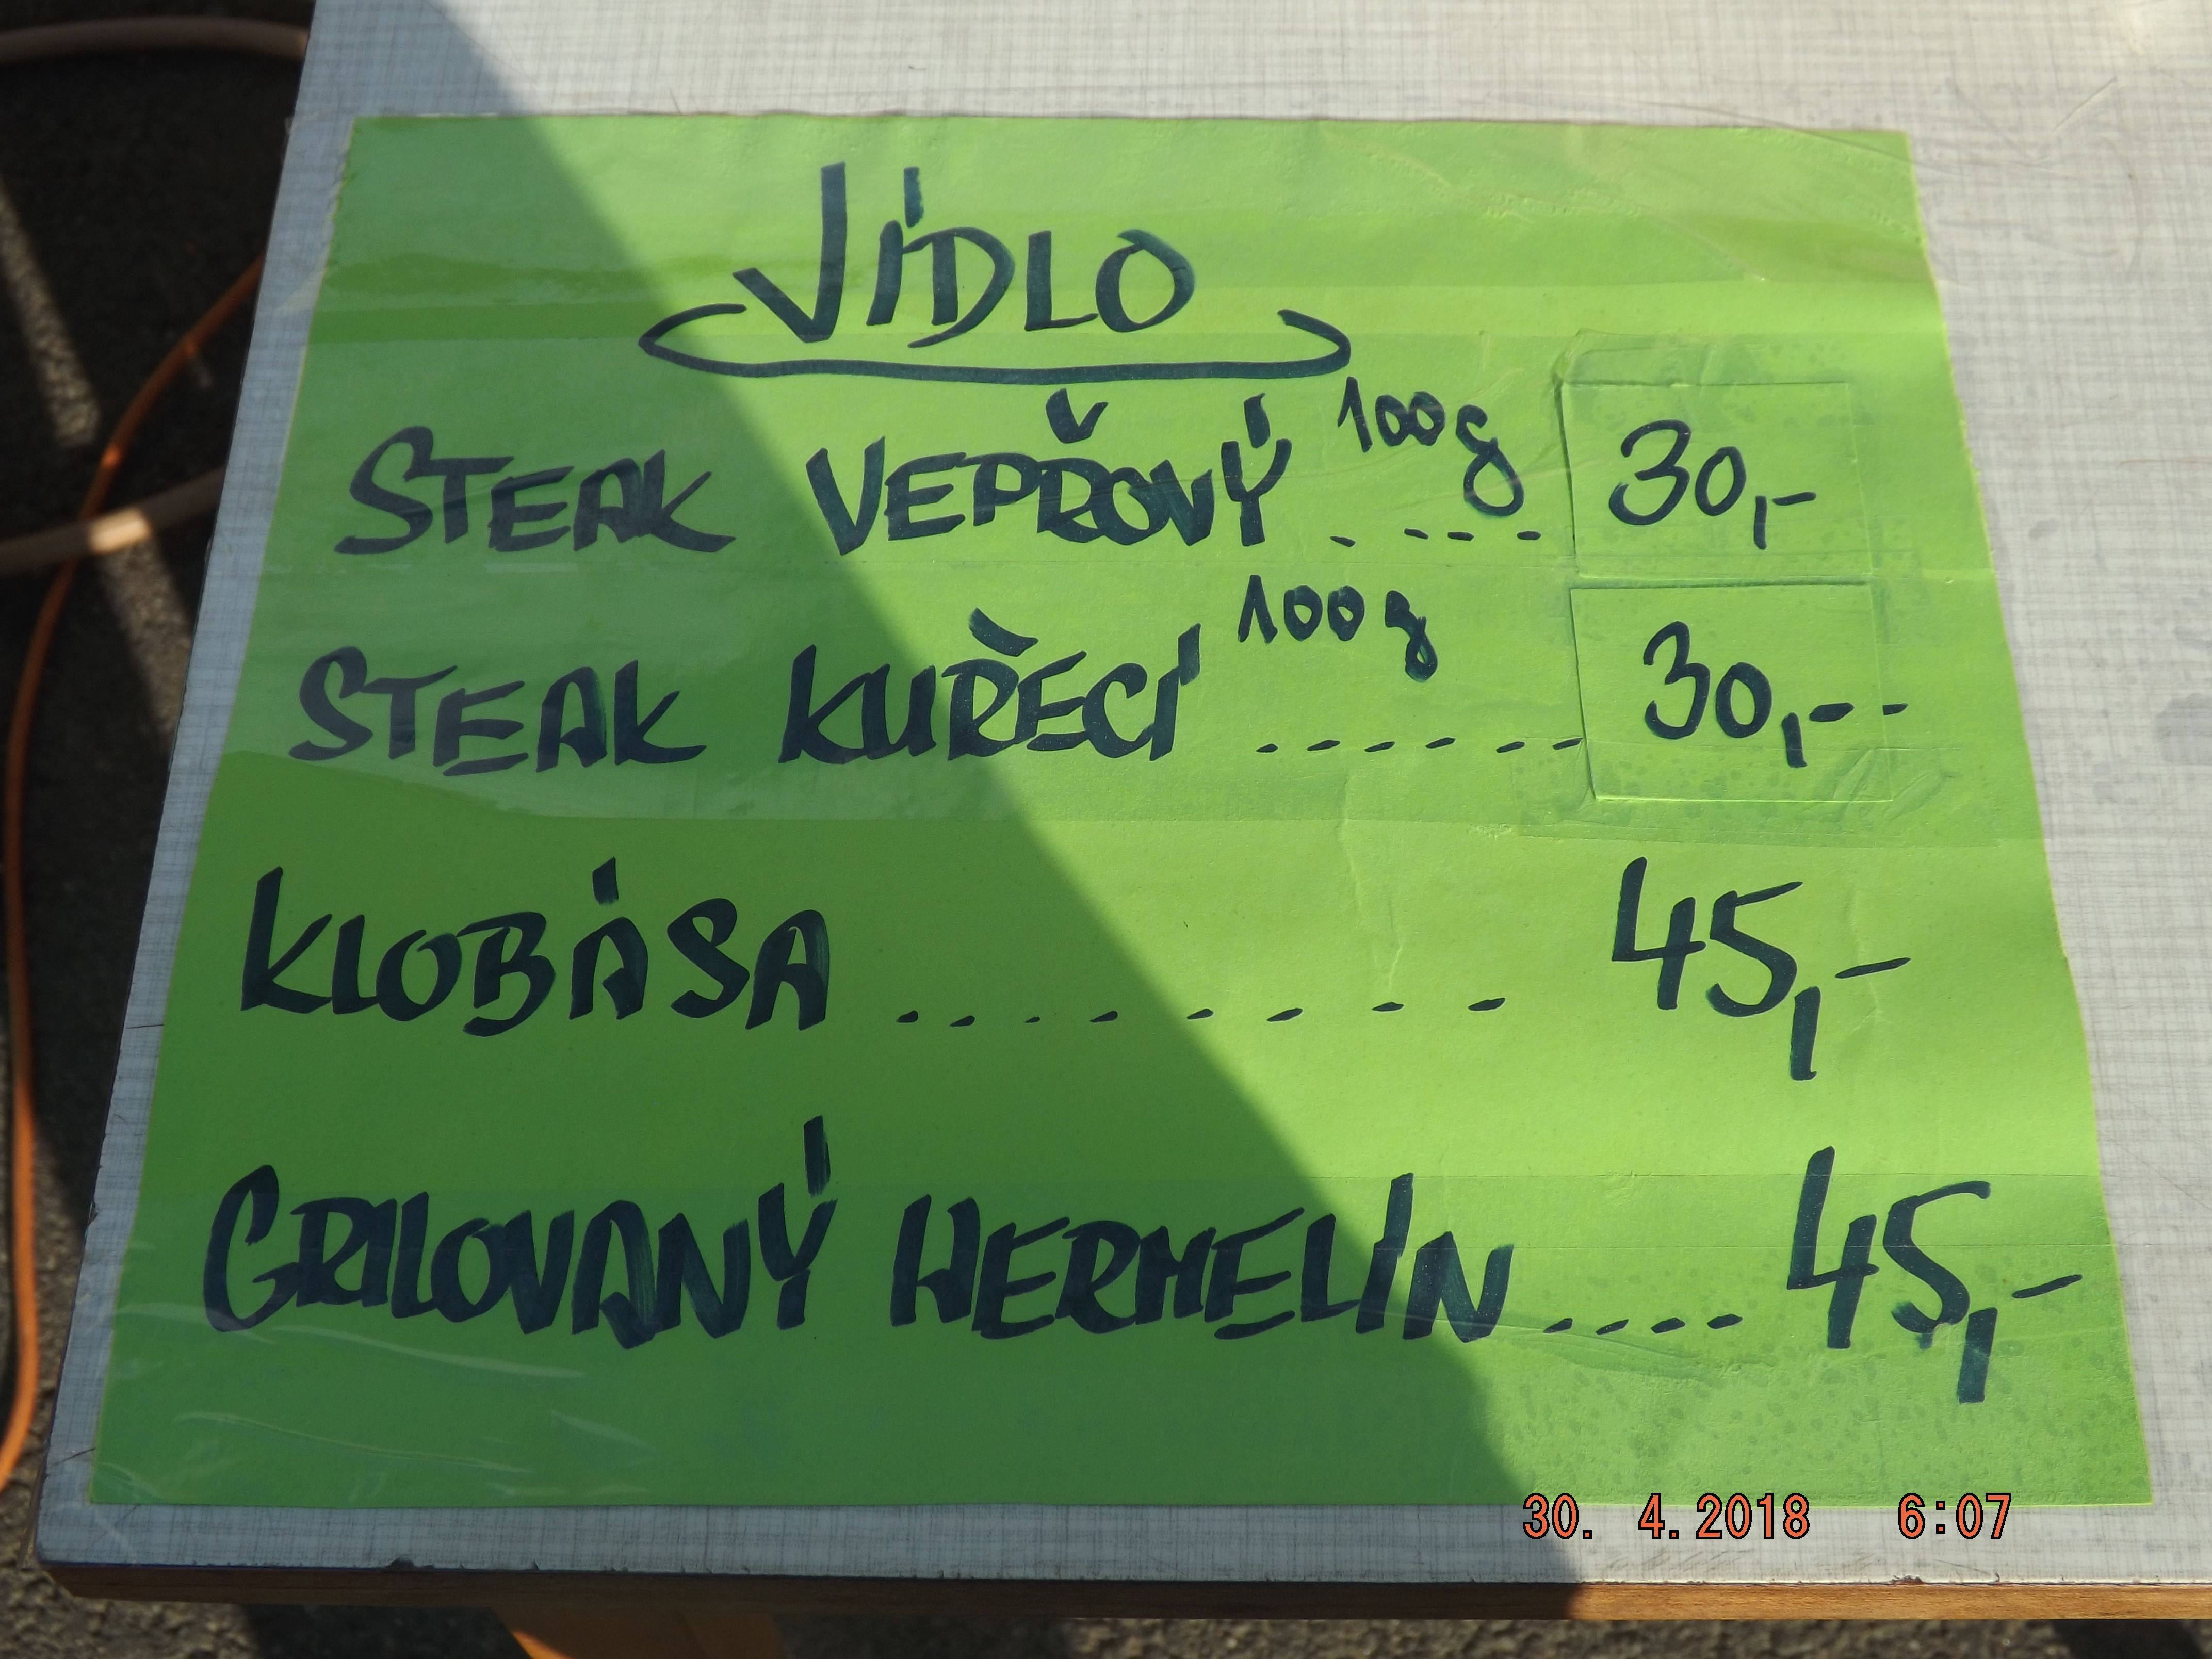 JÍDLO
STEAK VEPŘOVÝ 100g .---- 30,-
STEAK KUŘECÍ 100g ------ 30,--
KLOBÁSA ........ 45,-
GRILOVANÝ HERMELÍN .... 45,-
30. 4.2018 6:07